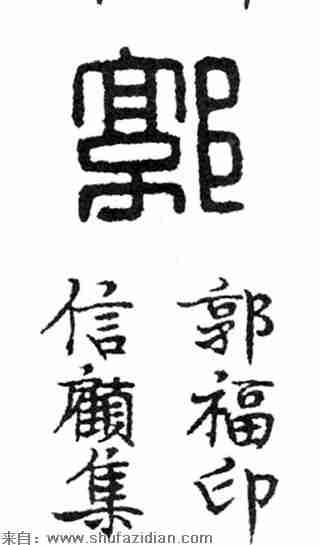 郭
郭福印
信顧集
来自：www.shufazidian.com